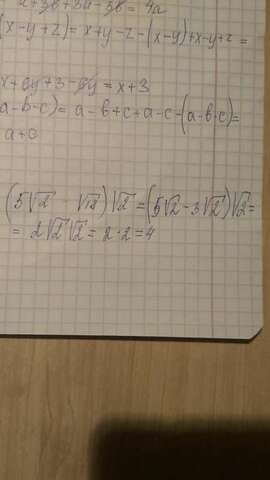 a+3b+3a-3b= 4a
(x-y+z)= x+y-z-(x-y)+x-y+z=
x+6y+3-6y=x+3
a-b-c)= a-b+c+a-c-(a-b-c)=
a+c
(5√2 - √18)√2=(5√2-3√2)√2=
= 2√2 √2= 2·2=4